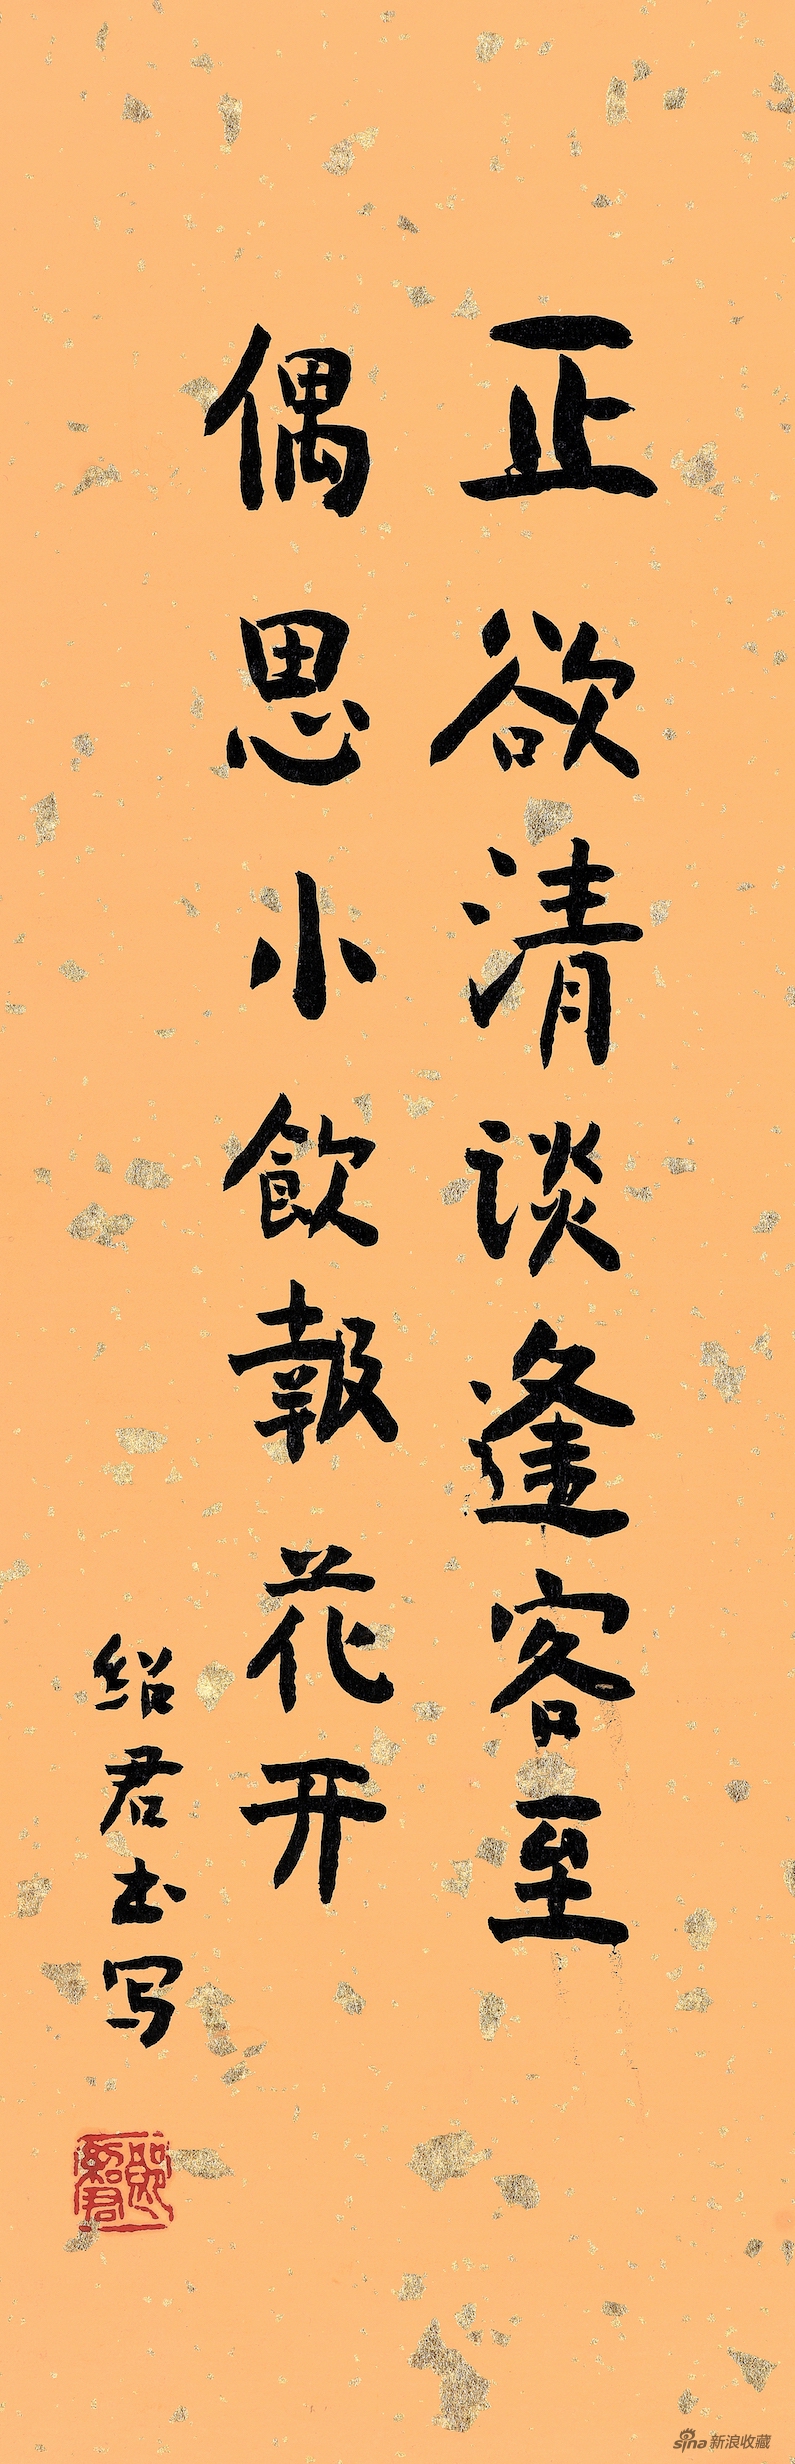 正欲清谈逢客至
偶思小飲報花开
绍君书写
sina 新浪收藏